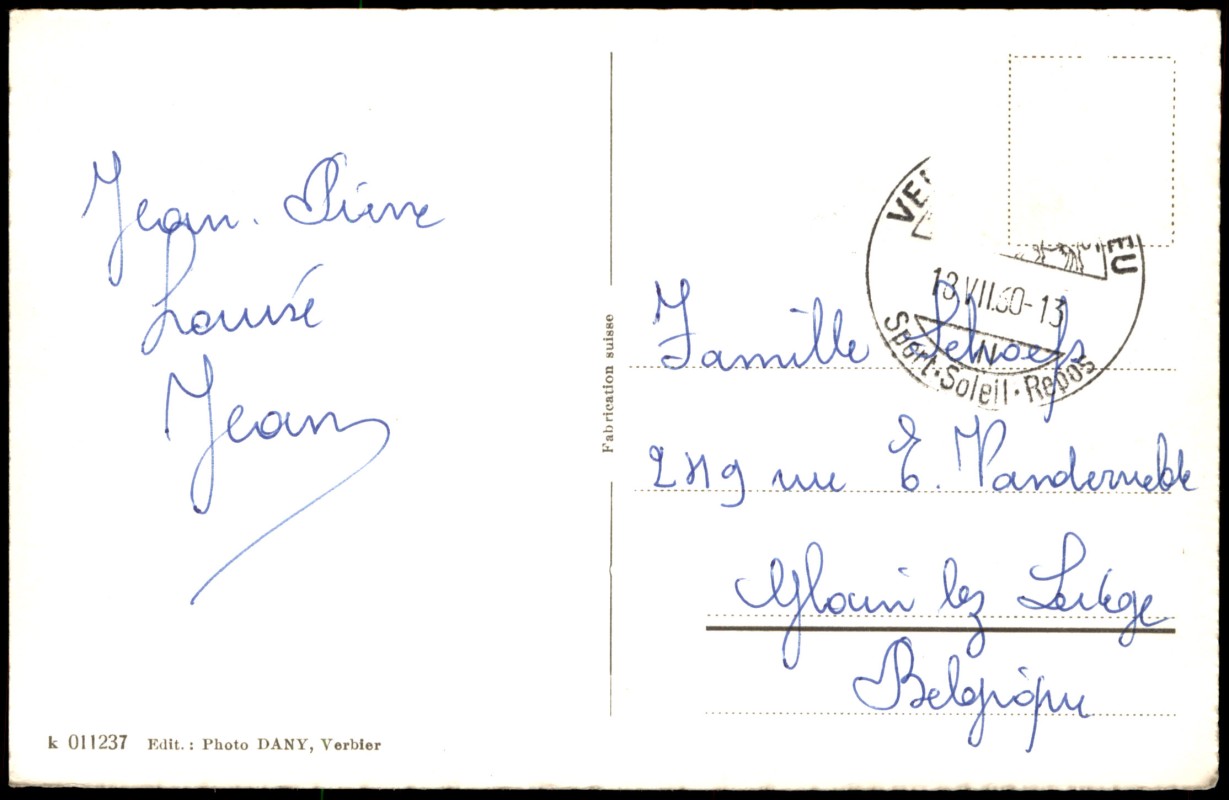 Jean-Pierre
Louise
Jean
k 011237 Edit.: Photo DANY, Verbier
Fabrication suisse
EU
18.VII.60-13
Sport·Soleil·Repos
Famille Schoefs
rue E. Vandervelde
Glain lez Liège
Belgique